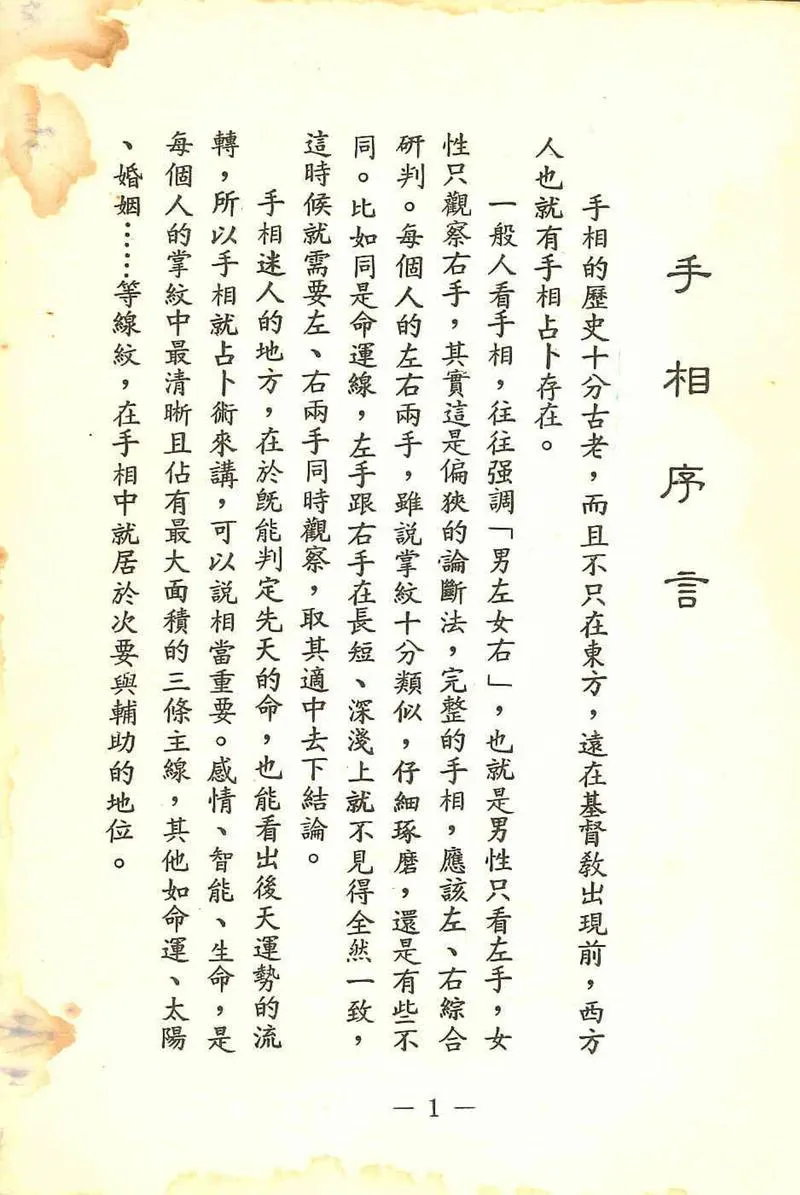 手相序言
手相的歷史十分古老，而且不只在東方，遠在基督教出現前，西方
人也就有手相占卜存在。
一般人看手相，往往强調「男左女右」，也就是男性只看左手，女
性只觀察右手，其實這是偏狹的論斷法，完整的手相，應該左、右綜合
研判。每個人的左右兩手，雖說掌紋十分類似，仔細琢磨，還是有些不
同。比如同是命運線，左手跟右手在長短、深淺上就不見得全然一致，
這時候就需要左、右兩手同時觀察，取其適中去下結論。
手相迷人的地方，在於既能判定先天的命，也能看出後天運勢的流
轉，所以手相就占卜術來講，可以說相當重要。感情、智能、生命，是
每個人的掌紋中最清晰且佔有最大面積的三條主線，其他如命運、太陽
、婚姻……等線紋，在手相中就居於次要與輔助的地位。
— 1 —